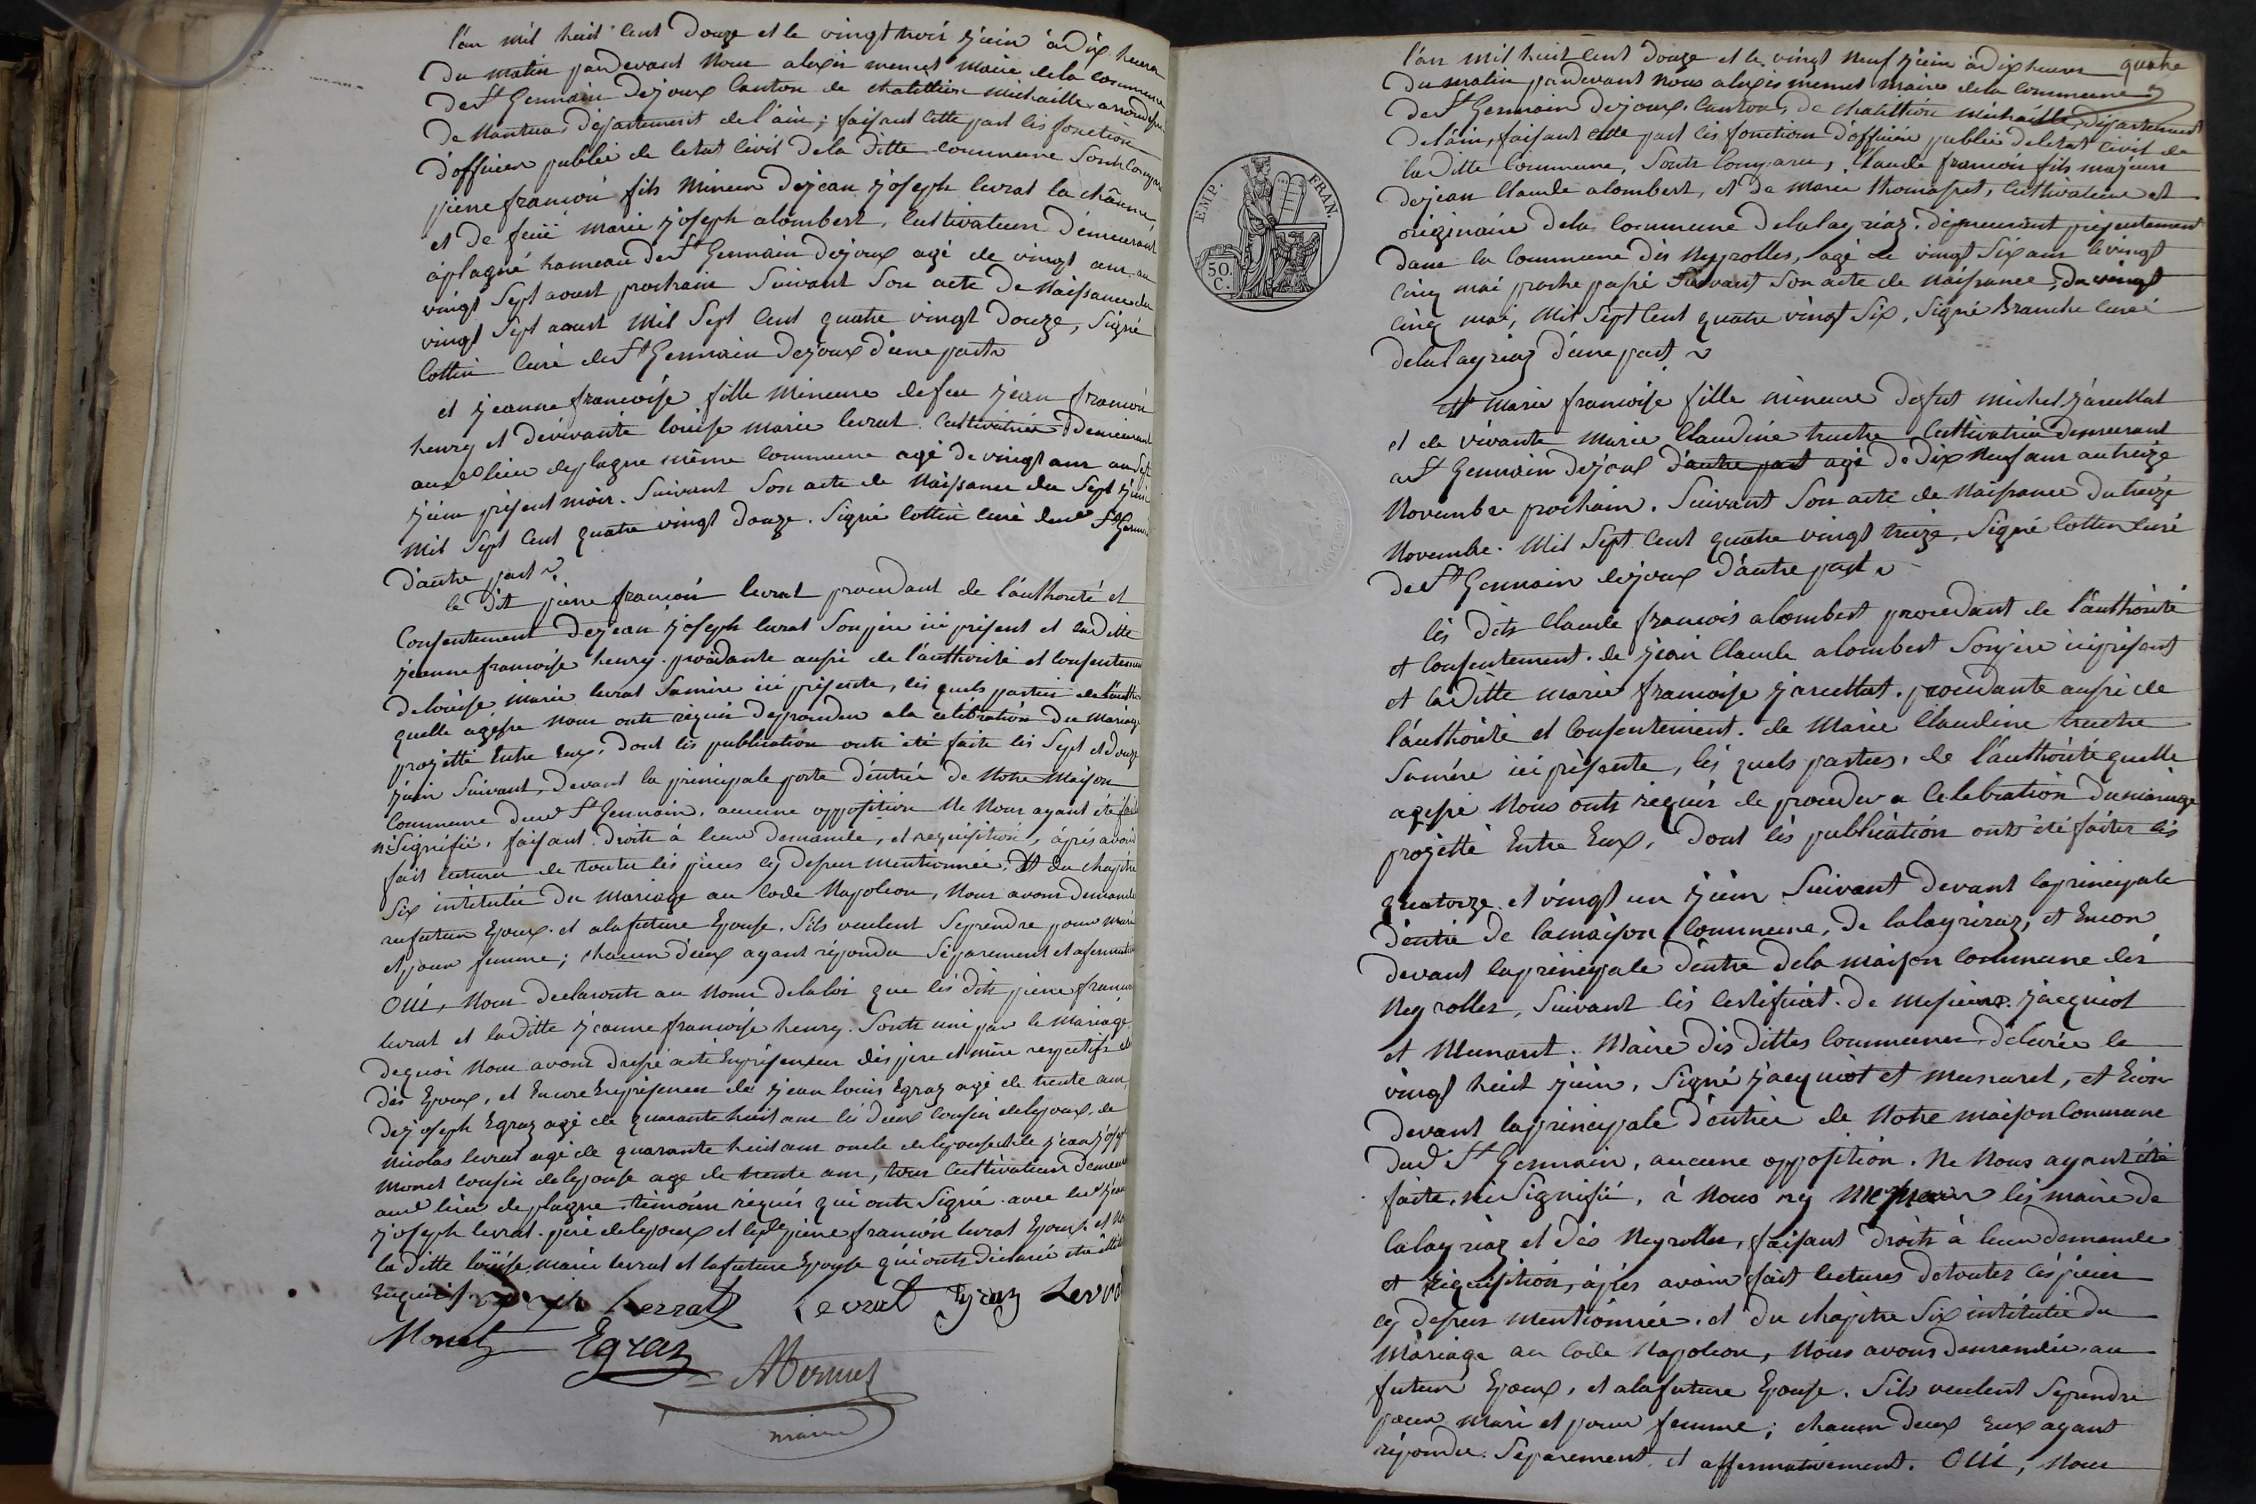 l'an mil huit cent douze et le vingt trois juin à dix heures
du matin pardevant Nous alexis mermet maire dela commune
de St Germain dejoux canton de chatillion michaille arrondis
de Nantua, département de l'ain; faisant cette part les fonction
d'officier public de letat civil dela ditte commune sont comparu
pierre francois fils mineur dejean joseph levrat la
et de feüe marie joseph alombert, cultivateur demeurant
àplagne hameau de St Germain dejoux agé de vingt ans au
vingt sept aoust prochain suivant son acte de Naissance du
vingt sept aoust mil sept cent quatre vingt douze, signé
Cottin curé de St Germain dejoux d'une part
et jeanne francoise fille mineure de feu jean francois
henry et devivante louise marie levrat cultivatrice demeurant
aud lieu deplagne même commune agé de vingt ans au sept
juin présent mois. suivant son acte de Naissance du sept juin
mil sept cent quatre vingt douze. signé Cottin curé dud St Germain
d'autre part
le dit pierre francois levrat procedant de l'authorité et
consentement dejean joseph levrat son père ici présent et laditte
jeanne francoise henry procédante aussi de l'authorité et consentement
delouise marie levrat samère ici présente, les quels parties de l'autho
quelle agisse nous ont réquis deproceder ala célébration du mariage
projetté entre eux, dont les publication ont été faite les sept et douze
juin suivant, devant la principale porte d'entrée de Notre maison
commune dud St Germain, aucune opposition ne nous ayant été faite
ni signifié, faisant droit à leur demande, et requisition, après avoir
fait lecture de toutes les pièces cy dessus mentionnée, et du chapitre
six intitulée du mariage au code Napoleon, Nous avons demandé
aufuteur Epoux et alafuture Epouse, s'ils veulent seprendre pour mari
et pour femme; chacun d'eux ayant répondu séparement et afirmative
Oüi, Nous declarons au Nom delaloi que les dits pierre francois
levrat et laditte jeanne francoise henry. sont uni par le mariage
dequoi Nous avons dressé acte enprésence des père et mère respectifs
des Epoux, et encore enpresence de jean louis Egraz agé de trente ans
dejoseph Egraz agé de quarante huit ans les deux cousin delepoux, de
nicolas levrat agé de quarante huit ans oncle delepouse et de jean joseph
Monet cousin delepouse age de trente ans, tous cultivateurs demeurant
aud lieu de plagne témoins réquis qui ont signé avec led jean
joseph levrat père delepoux et led pierre francois levrat Epoux et
la ditte loüise marie levrat et lafuture Epouse qui ont déclaré
enquis
Levrat Egraz
Monet Egraz
Mermet
maire
quatre
l'an mil huit cent douze et le vingt neuf juin à dix heures
du matin pardevant nous alexis mermet maire dela commune
de St Germain dejoux, canton de chatillion michaille, département
de l'ain, faisant cette part les fonctions d'officier public deletat civil de
la ditte commune, sont comparu, Claude francois fils majeur
dejean Claude alombert, et de marie thomasset, cultivateur et
originaire dela commune delalayriaz. demeurant présentement
dans la commune des Neyrolles, agé de vingt six ans le vingt
cinq mai proche passé suivant son acte de naissance, du vingt
cinq mai, mil sept cent quatre vingt six, signé Branche curé
delalayriaz d'une part
et marie francoise fille mineure defut michel
et de vivante marie Claudine truche cultivatrice demeurant
a St Germain dejoux d'autre part agé de dix Neuf ans autreize
Novembre prochain. suivant son acte de Naissance dutreize
Novembre. mil sept cent quatre vingt treize, signé Cottin curé
de St Germain dejoux d'autre part
les dits Claude francois alombert procedant de l'authorité
et consentement. de jean Claude alombert sonpère ici présent
et laditte marie francoise procedante aussi de
l'authorité et consentement. de marie Claudine truche
samère ici présente, les quels parties, de l'authorité quelle
agisse nous ont requis de proceder a celebration dumariage
projetté Entre Eux, dont les publication ont été faites les
quatorze et vingt un juin suivant devant laprincipale
d'entré de lamaison Commune, de lalayriaz, et Encor
devant laprincipale d'entre dela maison commune des
Neyrolles, suivant les certificat. de messieurs jacquiot
et Munaret. Maire des dittes communes délivrée le
vingt huit juin, signé jacquiot et munaret, et Encor
devant laprincipale d'entrée de Notre maison Commune
dud St Germain, aucune opposition. Ne Nous ayant été
faite, ni signifié, à nous ny les maire de
lalayriaz et des Neyrolles, faisant droit à leur demande
et requisition, après avoir fait lectures detoutes les pièces
cy dessus mentionnée. et du chapitre six intitulée du
mariage au code Napoleon, Nous avons demandée au
futeur Epoux, et alafuture Epouse. s'ils veulent seprendre
pour mari et pour femme; chacun deux eux ayant
répondu separement et affermativement. Oüi, Nous
EMP. FRAN.
50.
C.